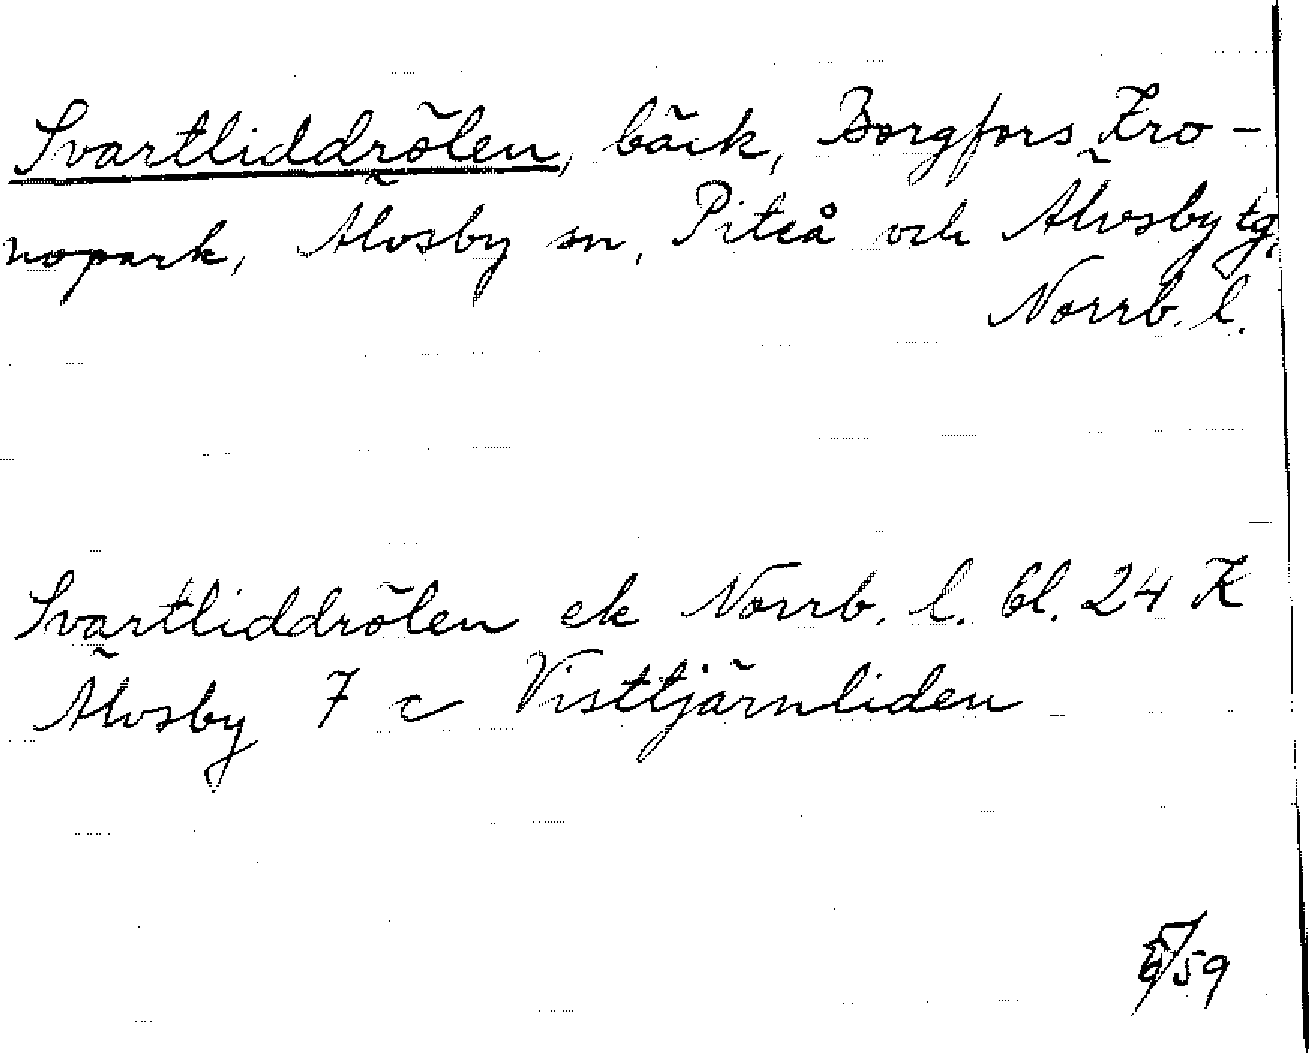 Svartliddrölen, bäck, Borgfors Kro-
nopark, Älvsby sn, Piteå och Älvsby tg,
Norrb. l.
Svartliddrölen ek Norrb. l. bl. 24 K
Älvsby 7 c Visttjärnliden
/59